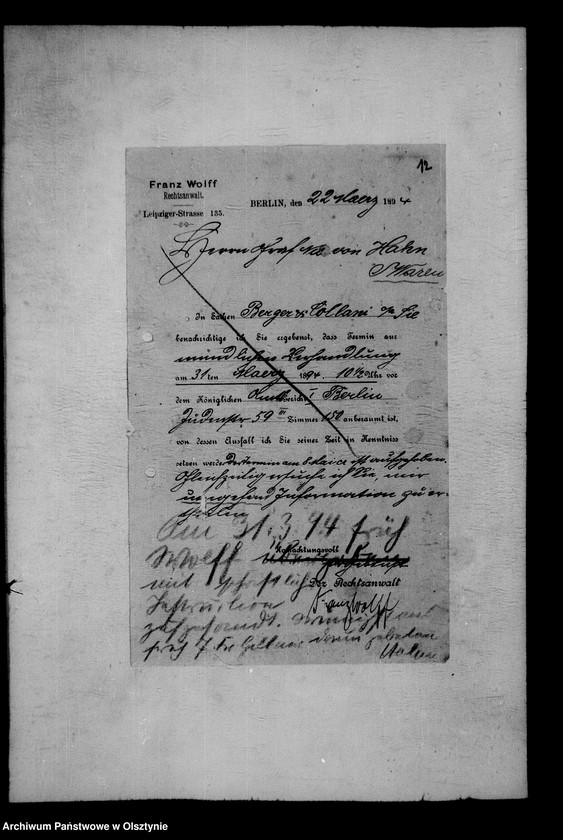 12
Franz Wolff
Rechtsanwalt.
Leipziger-Strasse 135.
BERLIN, den 22 Maerz 1894
Herrn Graf von Hahn
Waren
In Sachen Berger & Collani c/a Sie
benachrichtige ich Sie ergebenst, dass Termin zur
mündlichen Verhandlung
am 31ten Maerz 1894. 10 1/2 Uhr vor
dem Königlichen Amtsgericht I Berlin
Jüdenstr 59 III Zimmer 150 anberaumt ist,
von dessen Ausfall ich Sie seiner Zeit in Kenntniss
setzen werde. Der Termin am 8 Mai cr ist aufgehoben.
Gleichzeitig ersuche ich Sie, mir
umgehend Information zu er-
theilen
Am 31.3.94 früh
Wolff
Hochachtungsvoll
mit schriftlicher
Der Rechtsanwalt
Instruction
Franz Wolff
zugesandt.
Archiwum Państwowe w Olsztynie